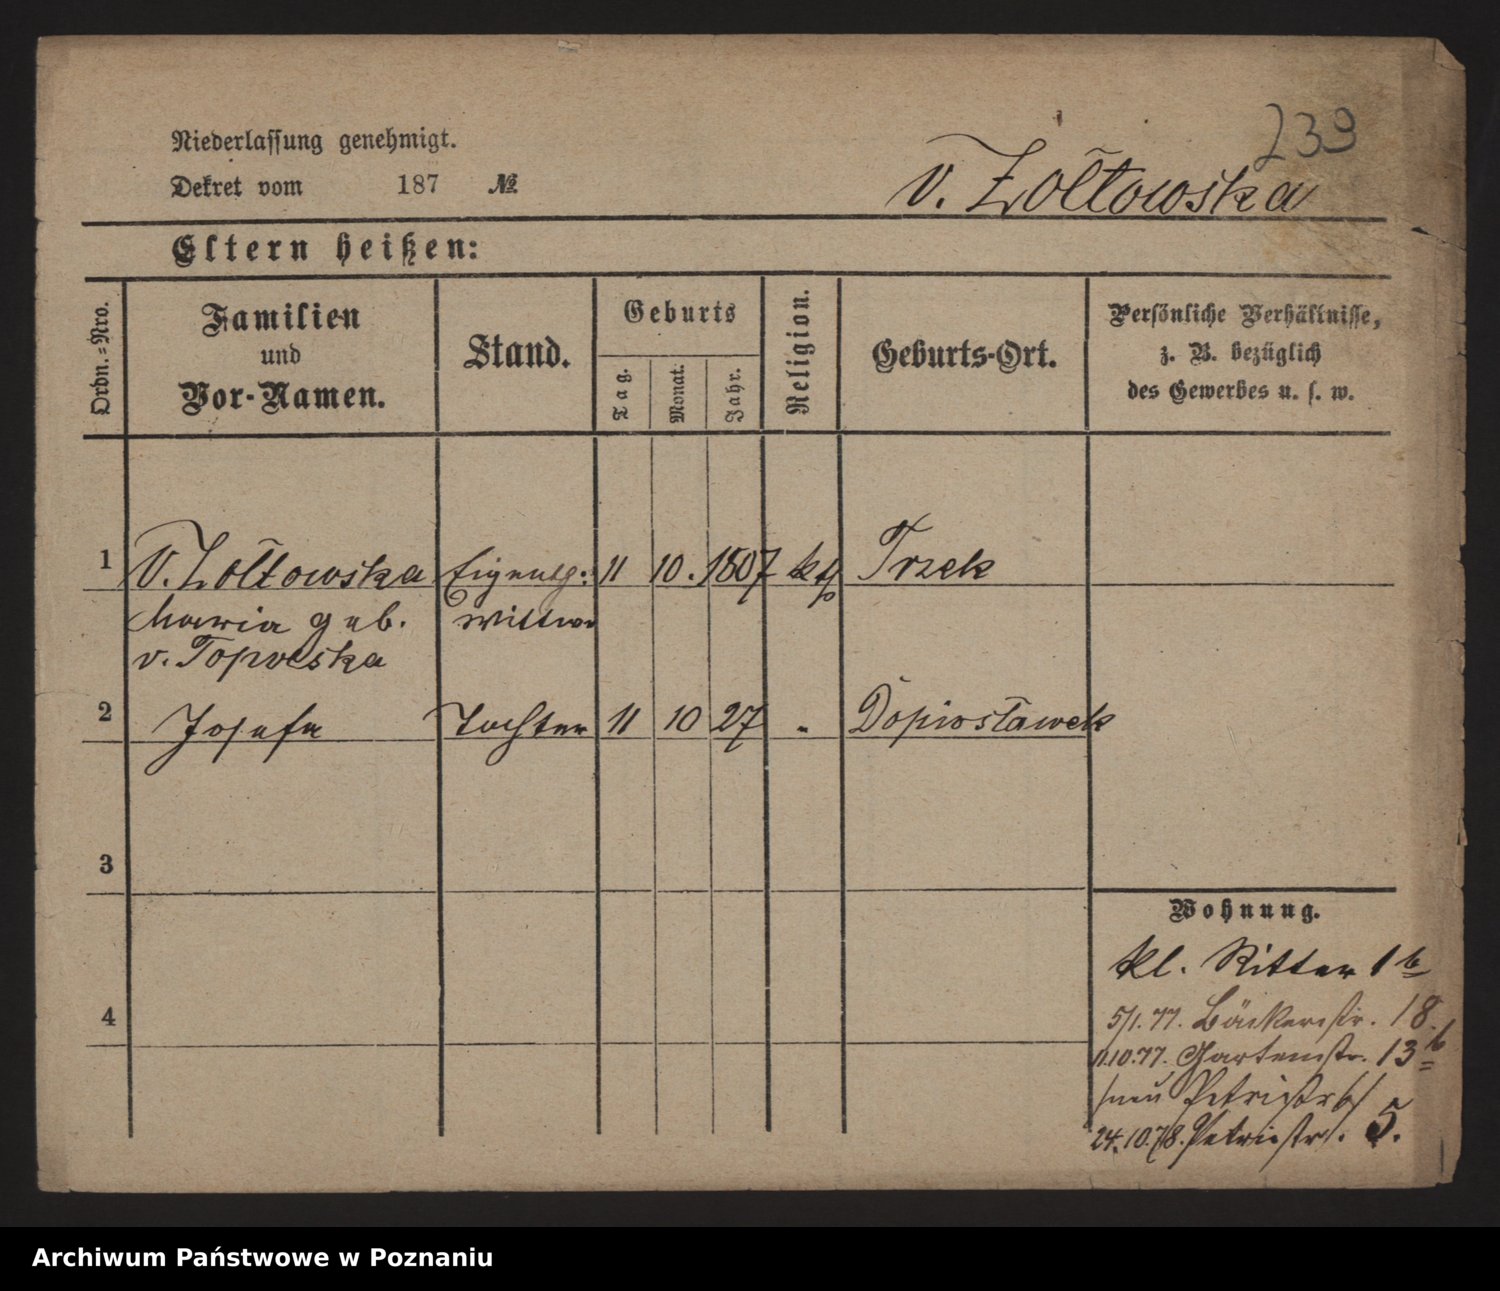 239
Niederlassung genehmigt.
Dekret vom 187 №
v. Żółtowska
Eltern heißen:
Ordn.-Nro.
Familien
und
Vor-Namen.
Stand.
Geburts
Tag.
Monat.
Jahr.
Religion.
Geburts-Ort.
Persönliche Verhältnisse,
z. B. bezüglich
des Gewerbes u. s. w.
1 v. Żółtowska Eigenth: 11 10. 1807 kth Trzek
Maria geb. Wittwe
v.
2 Josefa Tochter 11 10 27 " Dopiostawek
3
4
Wohnung.
kl. Ritter 1b
5/1.77. Bäckerstr. 18.
11.10.77. Gartenstr. 13b
/neu Petristr 6/
24.10.78. Petristr. 5.
Archiwum Państwowe w Poznaniu